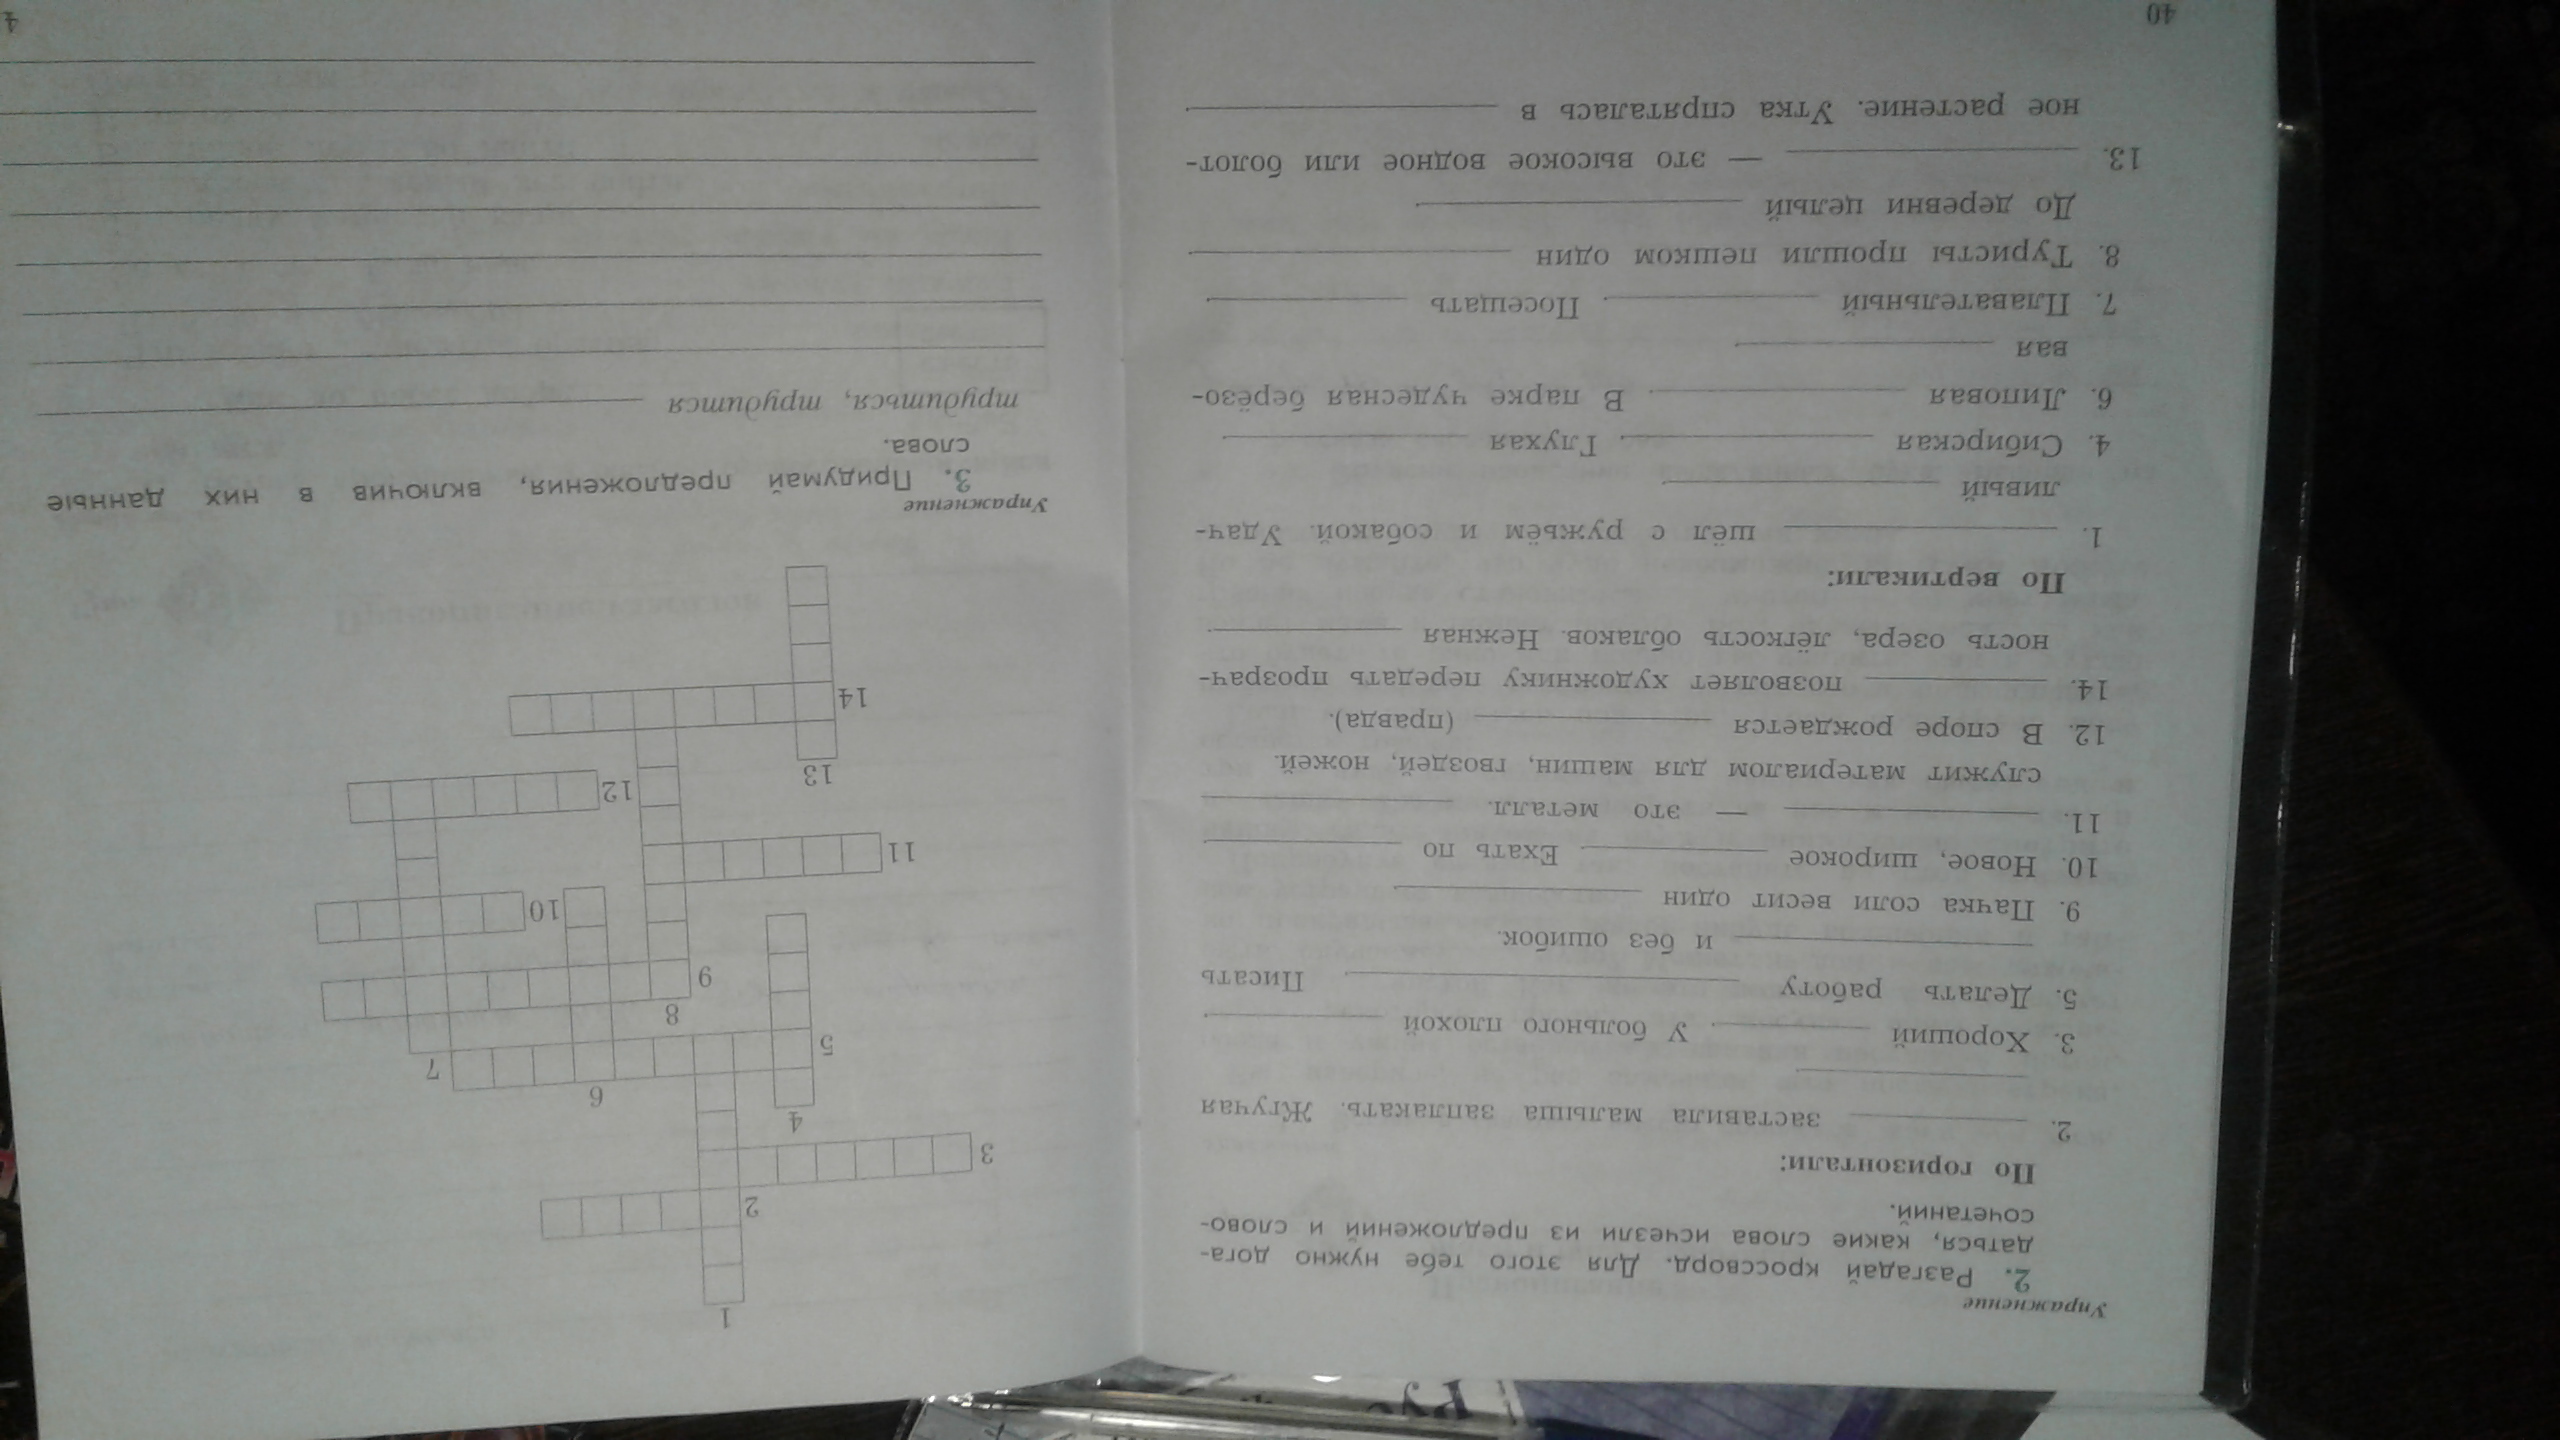 Упражнение
2. Разгадай кроссворд. Для этого тебе нужно дога-
даться, какие слова исчезли из предложений и слово-
сочетаний.
По горизонтали:
2. заставила малыша заплакать. Жгучая
3. Хороший . У больного плохой .
5. Делать работу . Писать
и без ошибок.
9. Пачка соли весит один .
10. Новое, широкое . Ехать по .
11. — это металл.
служит материалом для машин, гвоздей, ножей.
12. В споре рождается (правда).
14. позволяет художнику передать прозрач-
ность озера, лёгкость облаков. Нежная .
По вертикали:
1. шёл с ружьём и собакой. Удач-
ливый .
4. Сибирская . Глухая .
6. Липовая . В парке чудесная берёзо-
вая .
7. Плавательный . Посещать .
8. Туристы прошли пешком один .
До деревни целый .
13. — это высокое водное или болот-
ное растение. Утка спряталась в .
40
1
2
3
4
5
6
7
8
9
10
11
12
13
14
Упражнение
3. Придумай предложения, включив в них данные
слова.
трудиться, трудится
4
Ру